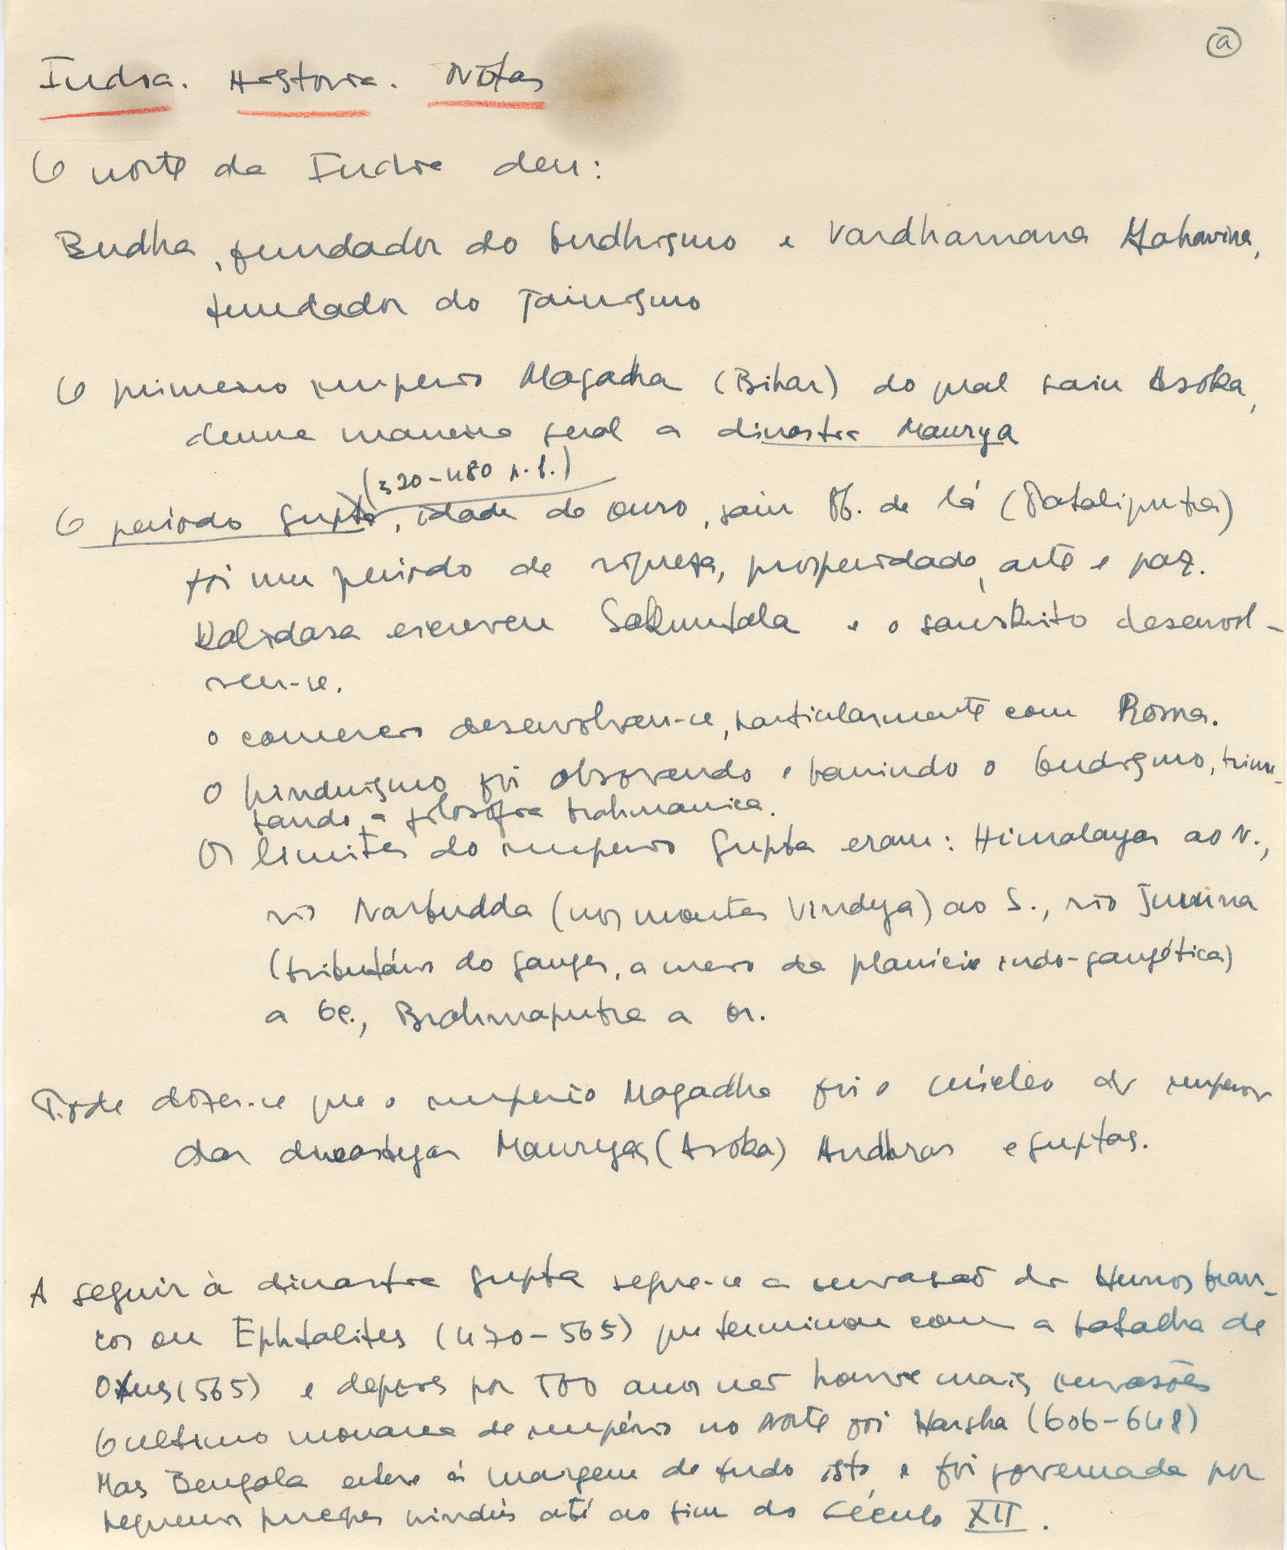 a
India. Historia. Notas
O norte da India deu:
Budha, fundador do budhismo e Vardhamana Mahavira,
fundador do Jainismo
O primeiro imperio Magadha (Bihar) do qual saiu Asoka,
duma maneira geral a dinastia Maurya
(320-480 A.D.)
O periodo Gupta, idade de ouro, saiu tb. de lá (Pataliputra)
foi um periodo de riqueza, prosperidade, arte e paz.
Kalidasa escreveu Sakuntala e o sanskrito desenvol-
veu-se.
o comercio desenvolveu-se, particularmente com Roma.
O hinduismo foi absorvendo e banindo o budismo, trium-
fando a filosofia brahmanica.
Os limites do imperio Gupta eram: Himalayas ao N.,
rio Narbudda (nos montes Vindya) ao S., rio Jumna
(tributário do Ganges, a meio da planície indo-gangética)
a Oc., Brahmaputra a or.
Pode dizer-se que o imperio Magadha foi o núcleo do imperio
das dinastias Mauryas (Asoka) Andhras e Guptas.
A seguir à dinastia Gupta segue-se a invasão dos Hunos bran-
cos ou Ephtalites (470-565) que terminou com a batalha de
Oxus (565) e depois por 500 anos não houve mais invasões
O ultimo monarca de império no Norte foi Harsha (606-648)
Mas Bengala esteve à margem de tudo isto e foi governada por
pequenos principes hindús até ao fim do século XII.